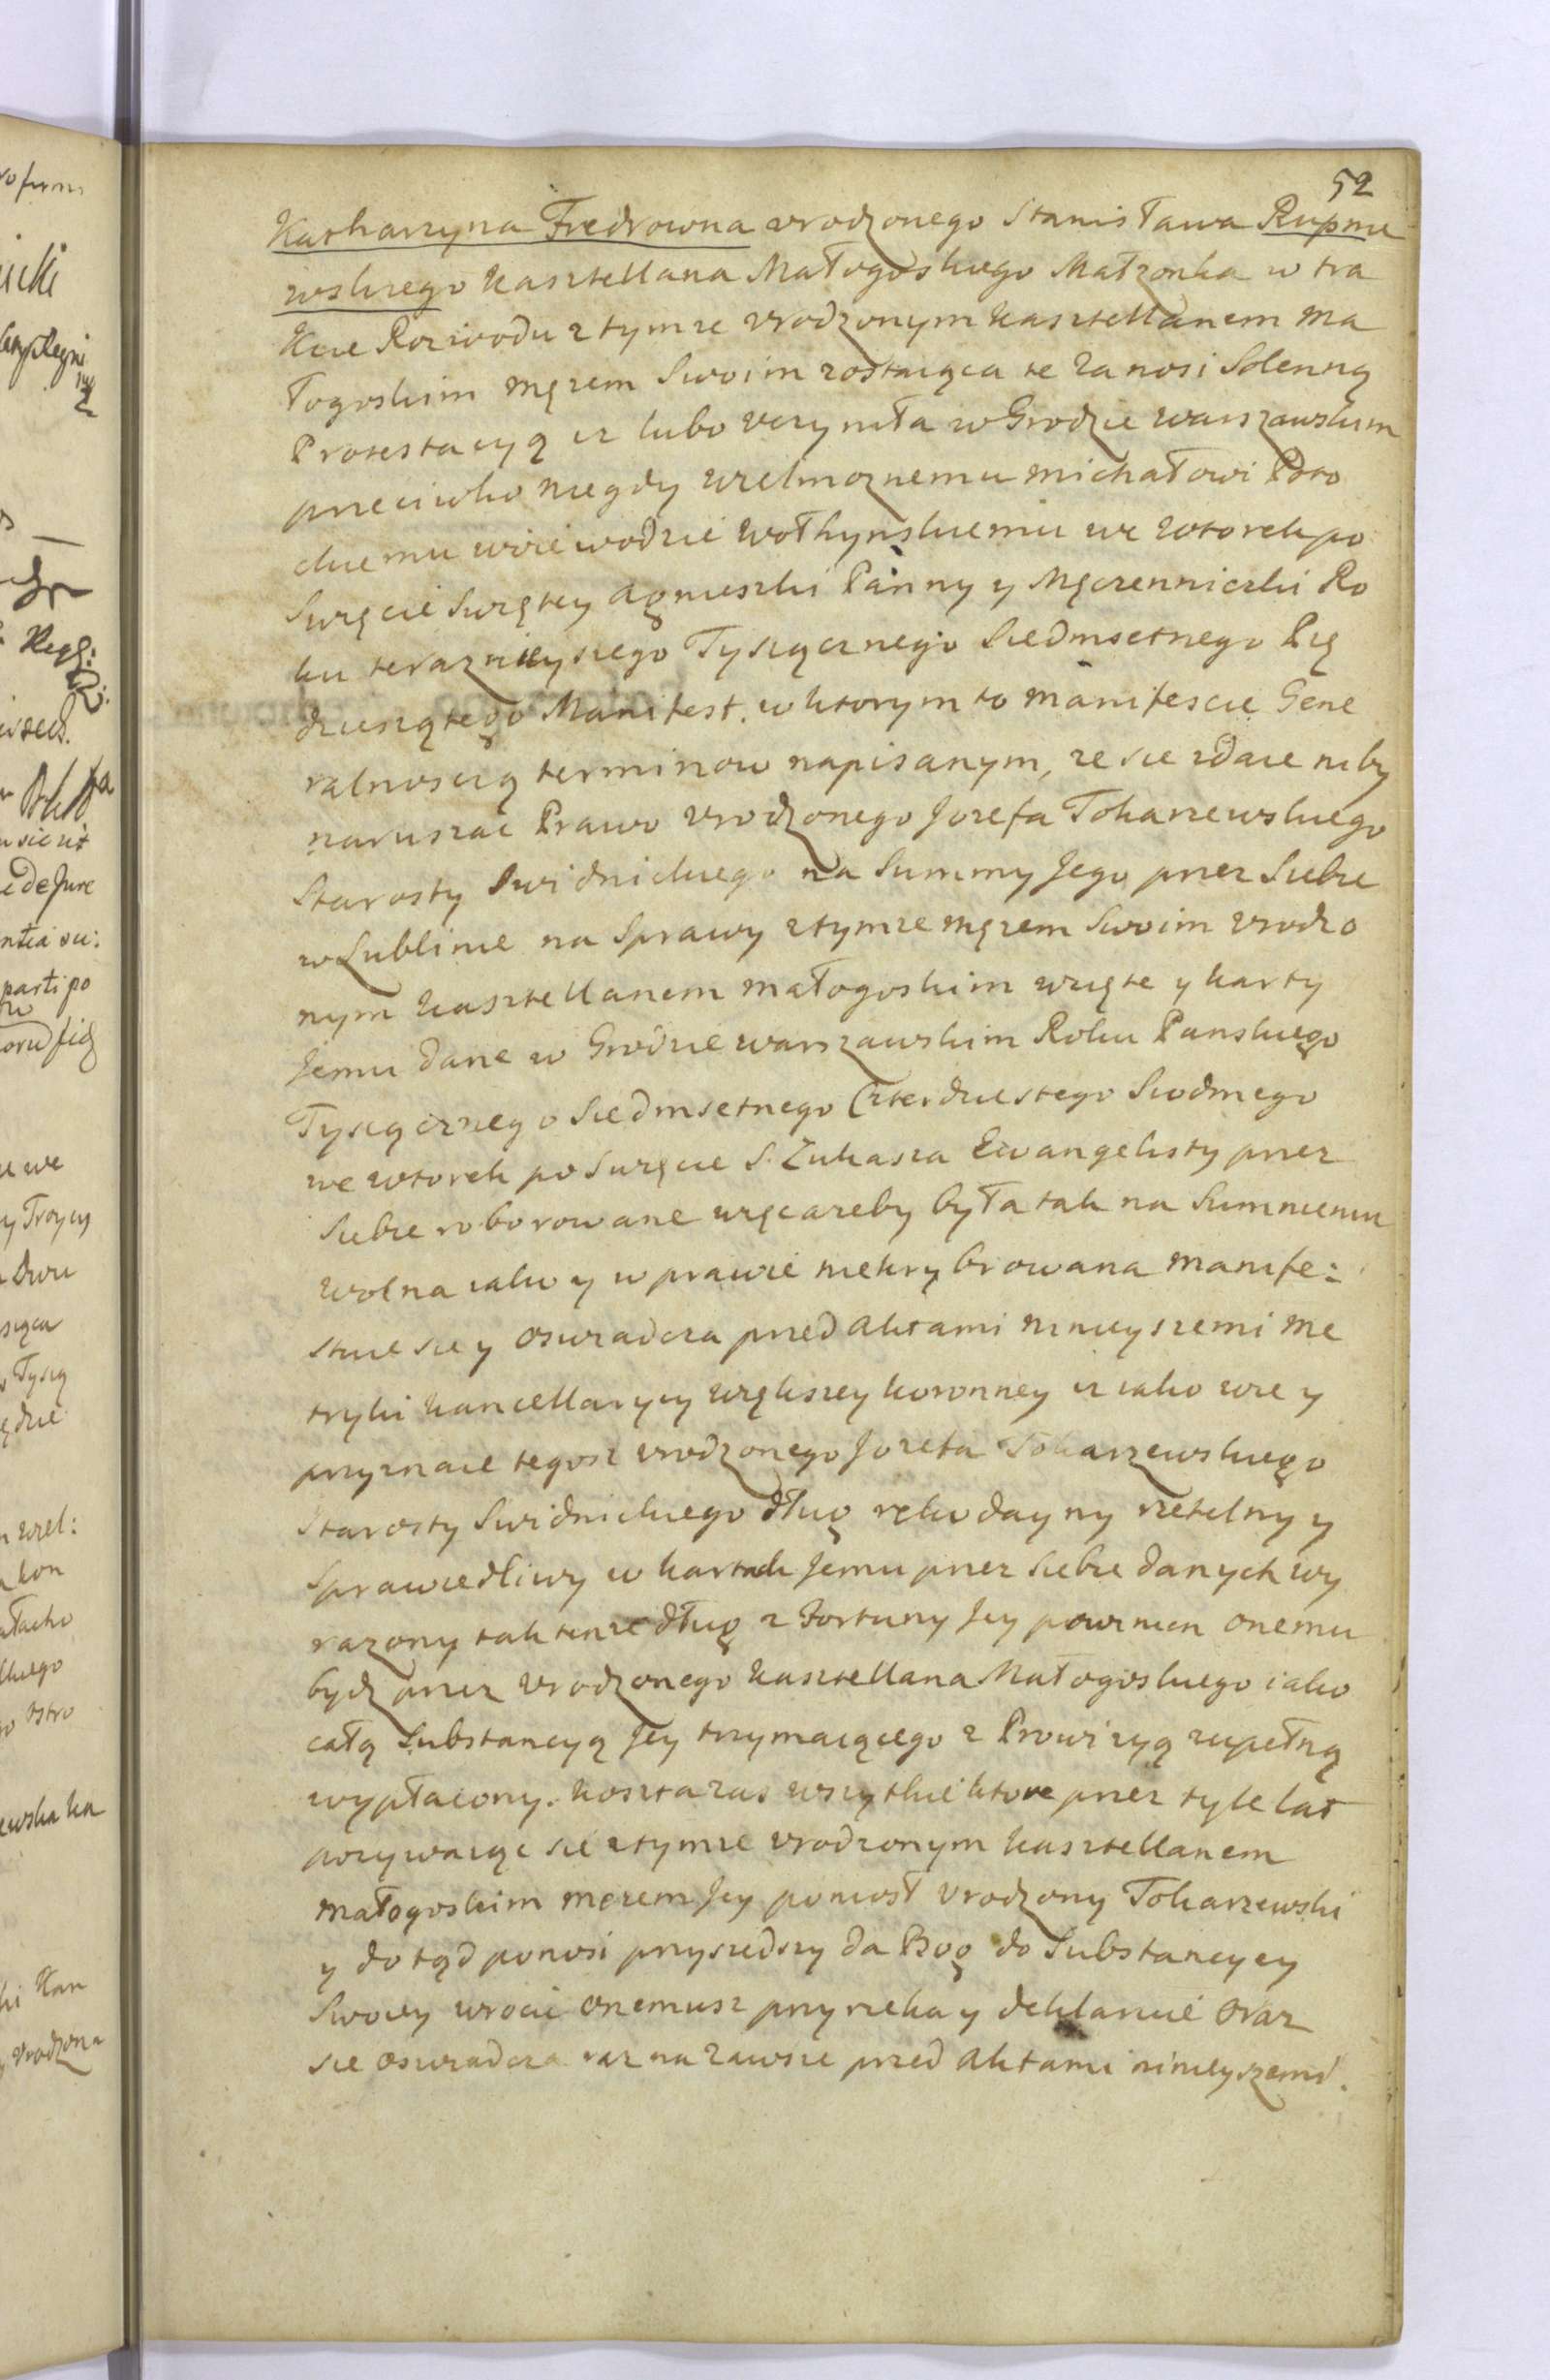 52
Katharzyna Fredrowna vrodzonego Stanisława Rupnie
wskiego Kasztellana Małogoskiego Małzonka w tra
kcie Rozwodu z tymze vrodzonym kasztellanem ma
łogoskim męzem Swoim zostaiąca te zanosi Solenną
Protestacyą iz lubo vczyniła w Grodzie warszawskim
przeciwko niegdy wielmoznemu michałowi Poto
ckiemu woiewodzie wołhynskiemu we wtorek po
Swięcie Swiętey Agnieszki Panny y Męczenniczki Ro
ku teraznieyszego Tysiącznego Siedmsetnego Pię
dziesiątego Manifest. w ktorym to manifescie Gene
ralnoscią terminow napisanym, ze sie zdaie niby
naruszac Prawo vrodzonego Jozefa Tokarzewskiego
Starosty Swidnickiego na Summy Jego przez Siebie
w Lublinie na Sprawy z tymze męzem Swoim vrodzo
nym kasztellanem małogoskim wzięte y karty
Jemu dane w Grodzie warszawskim Roku Panskiego
Tysiącznego Siedmsetnego Czterdziestego Siodmego
we wtorek po Swięcie S. Łukasza Ewangelisty przez
Siebie roborowane więc azeby była tak na Summieniu
wolna iako y w prawie niekrybrowana manife:
stuie sie y oswiadcza przed Aktami ninieyszemi me
tryki kancellaryi większey koronney iz iako wie y
przyznaie tegosz vrodzonego Jozefa Tokarzewskiego
Starosty Swidnickiego dług ręko dayny rzetelny y
Sprawiedliwy w kartach Jemu przez siebie danych wy
razony tak tenze dług z Fortuny Jey powinien onemu
bydz przez Vrodzonego kasztellana Małogoskiego iako
całą Substancyą Jey trzymaiącego z Prowizyą zupełną
wypłacony. koszta zas wszytkie ktore przez tyle lat
pozywaiąc sie z tymze vrodzonym kasztellanem
małogoskim męzem Jey poniosł vrodzony Tokarzewski
y do tąd ponosi przyszedszy da Bog do Substancyey
Swoiey wrocic onemusz przyrzeka y deklaruie oraz
sie oswiadcza raz na zawsze przed Aktami ninieyszemi.